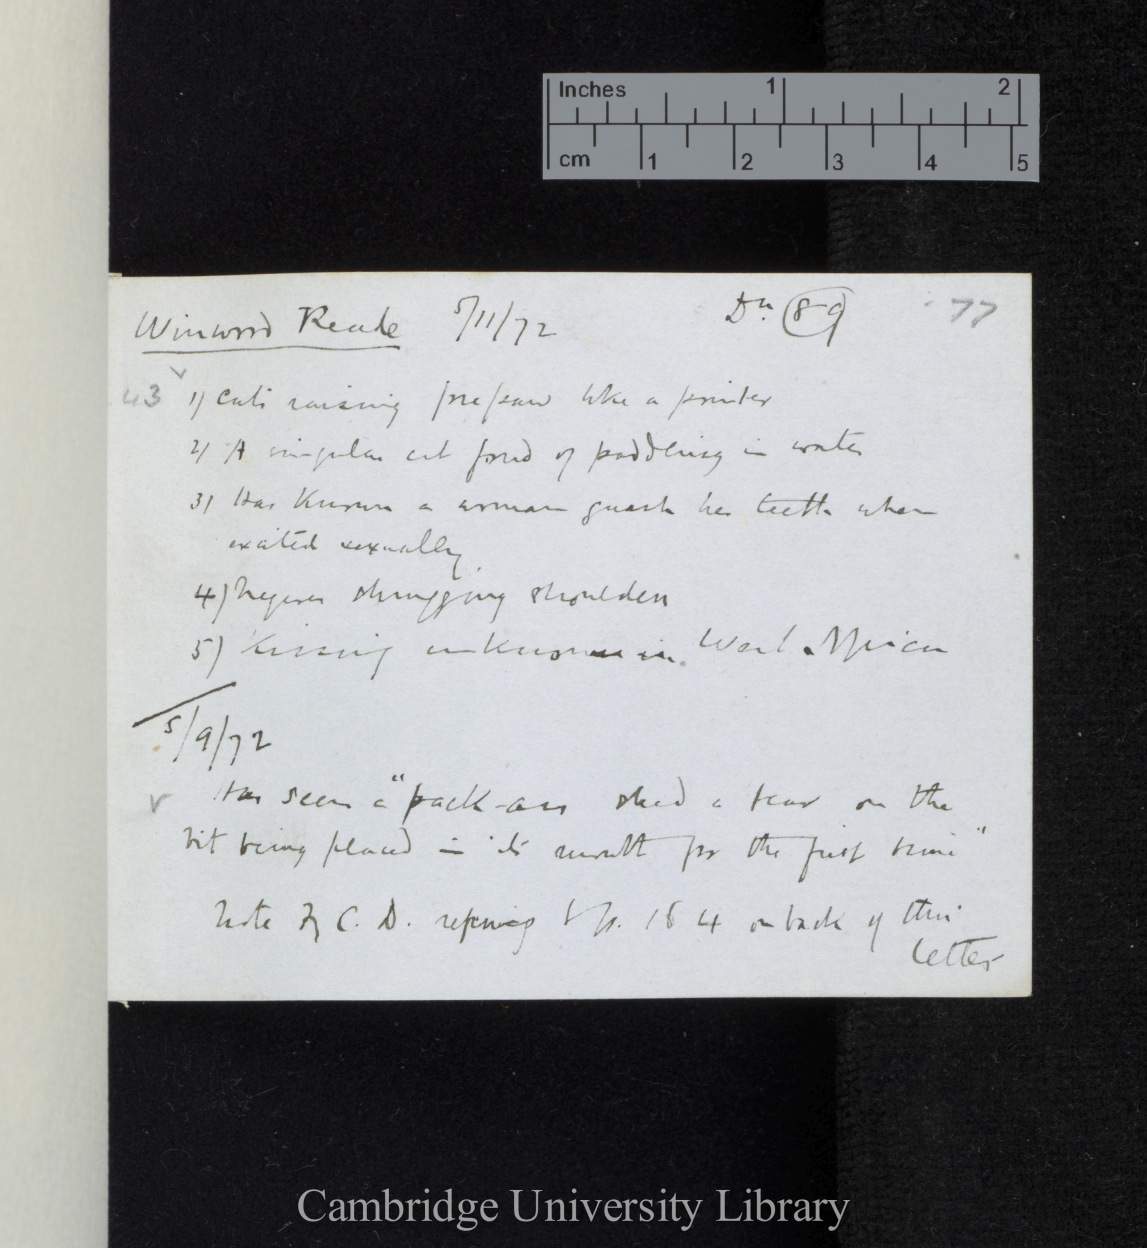 Inches 1 2
cm 1 2 3 4 5
Winwood Reade 5/11/72 Dn 89 77
43 1) Cats raising forepaw like a pointer
2) A singular cat fond of paddling in water
3) Has known a woman gnash her teeth when
excited sexually
4) Negroes shrugging shoulders
5) Kissing unknown in West Africa
5/9/72
Has seen a "pack-ass shed a tear on the
bit being placed in its mouth for the first time"
Note by C. D. referring to p. 184 on back of this
letter
Cambridge University Library